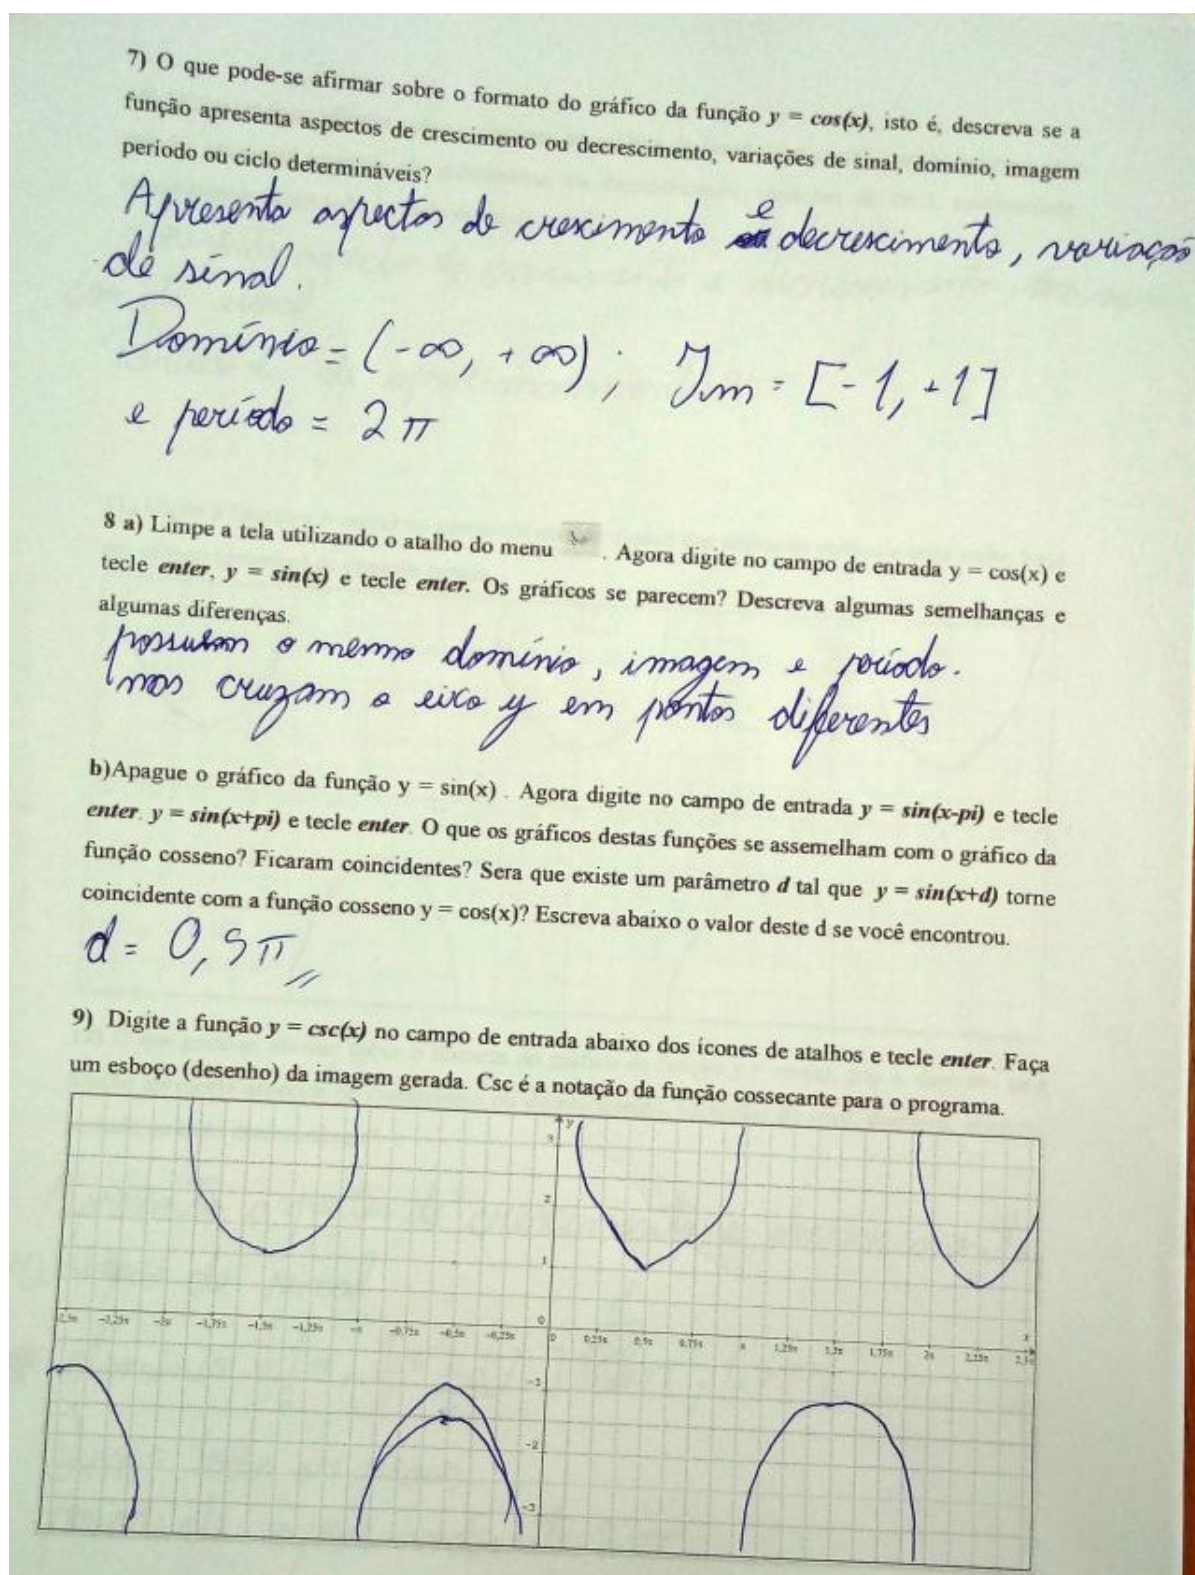 7) O que pode-se afirmar sobre o formato do gráfico da função y = cos(x), isto é, descreva se a
função apresenta aspectos de crescimento ou decrescimento, variações de sinal, domínio, imagem
período ou ciclo determináveis?
Apresenta aspectos de crescimento e decrescimento, variação
de sinal.
Domínio = (-∞, +∞) ; Im = [-1, +1]
e período = 2π
8 a) Limpe a tela utilizando o atalho do menu . Agora digite no campo de entrada y = cos(x) e
tecle enter, y = sin(x) e tecle enter. Os gráficos se parecem? Descreva algumas semelhanças e
algumas diferenças.
possuem o mesmo domínio, imagem e período.
mas cruzam o eixo y em pontos diferentes
b)Apague o gráfico da função y = sin(x) . Agora digite no campo de entrada y = sin(x-pi) e tecle
enter. y = sin(x+pi) e tecle enter. O que os gráficos destas funções se assemelham com o gráfico da
função cosseno? Ficaram coincidentes? Sera que existe um parâmetro d tal que y = sin(x+d) torne
coincidente com a função cosseno y = cos(x)? Escreva abaixo o valor deste d se você encontrou.
d = 0,5π
9) Digite a função y = csc(x) no campo de entrada abaixo dos ícones de atalhos e tecle enter. Faça
um esboço (desenho) da imagem gerada. Csc é a notação da função cossecante para o programa.
y
3
2
1
0
-2,25π -2π -1,75π -1,5π -1,25π -π -0,75π -0,5π -0,25π 0 0,25π 0,5π 0,75π π 1,25π 1,5π 1,75π 2π 2,25π x
-1
-2
-3